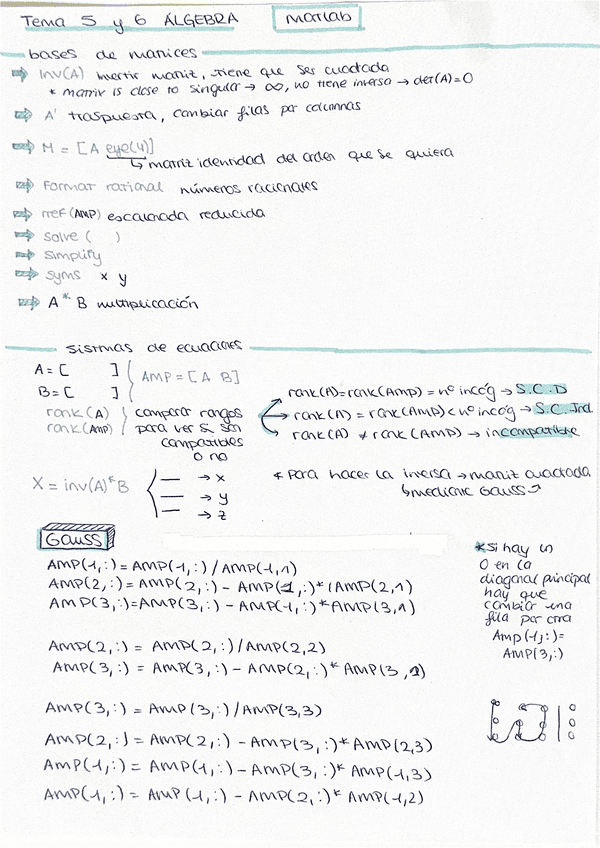 Tema 5 y 6 ÁLGEBRA
matlab
bases de matrices
inv(A) invertir matriz, tiene que ser cuadrada
* matrix is close to singular → ∞, no tiene inversa → det(A)=0
A' traspuesta, cambiar filas por columnas
M = [A eye(4)]
↳ matriz identidad del orden que se quiera
Format rational números racionales
rref(AMP) escalonada reducida
solve ( )
simplify
syms x y
A * B multiplicación
sistmas de ecuaciones
A = [ ]
B = [ ]
AMP = [A B]
rank(A)
rank(Amp)
comparar rangos
para ver si son
compatibles
o no
rank(A)=rank(Amp) = nº incóg → S.C.D
rank(A) = rank(Amp) < nº incóg → S.C.Ind
rank(A) ≠ rank(AMP) → incompatible
X = inv(A)*B
→ x
→ y
→ z
* Para hacer la inversa → matriz cuadrada
↳ mediante Gauss
Gauss
AMP(1,:) = AMP(1,:)/AMP(1,1)
AMP(2,:) = AMP(2,:) - AMP(1,:)*(AMP(2,1)
AMP(3,:)=AMP(3,:) - AMP(1,:)*AMP(3,1)
AMP(2,:) = AMP(2,:)/AMP(2,2)
AMP(3,:) = AMP(3,:) - AMP(2,:)*AMP(3,2)
AMP(3,:) = AMP(3,:)/AMP(3,3)
AMP(2,:) = AMP(2,:) - AMP(3,:)*AMP(2,3)
AMP(1,:) = AMP(1,:) - AMP(3,:)*AMP(1,3)
AMP(1,:) = AMP(1,:) - AMP(2,:)*AMP(1,2)
* si hay un
0 en la
diagonal principal
hay que
cambiar una
fila por otra
Amp(1,:)=
AMP(3,:)